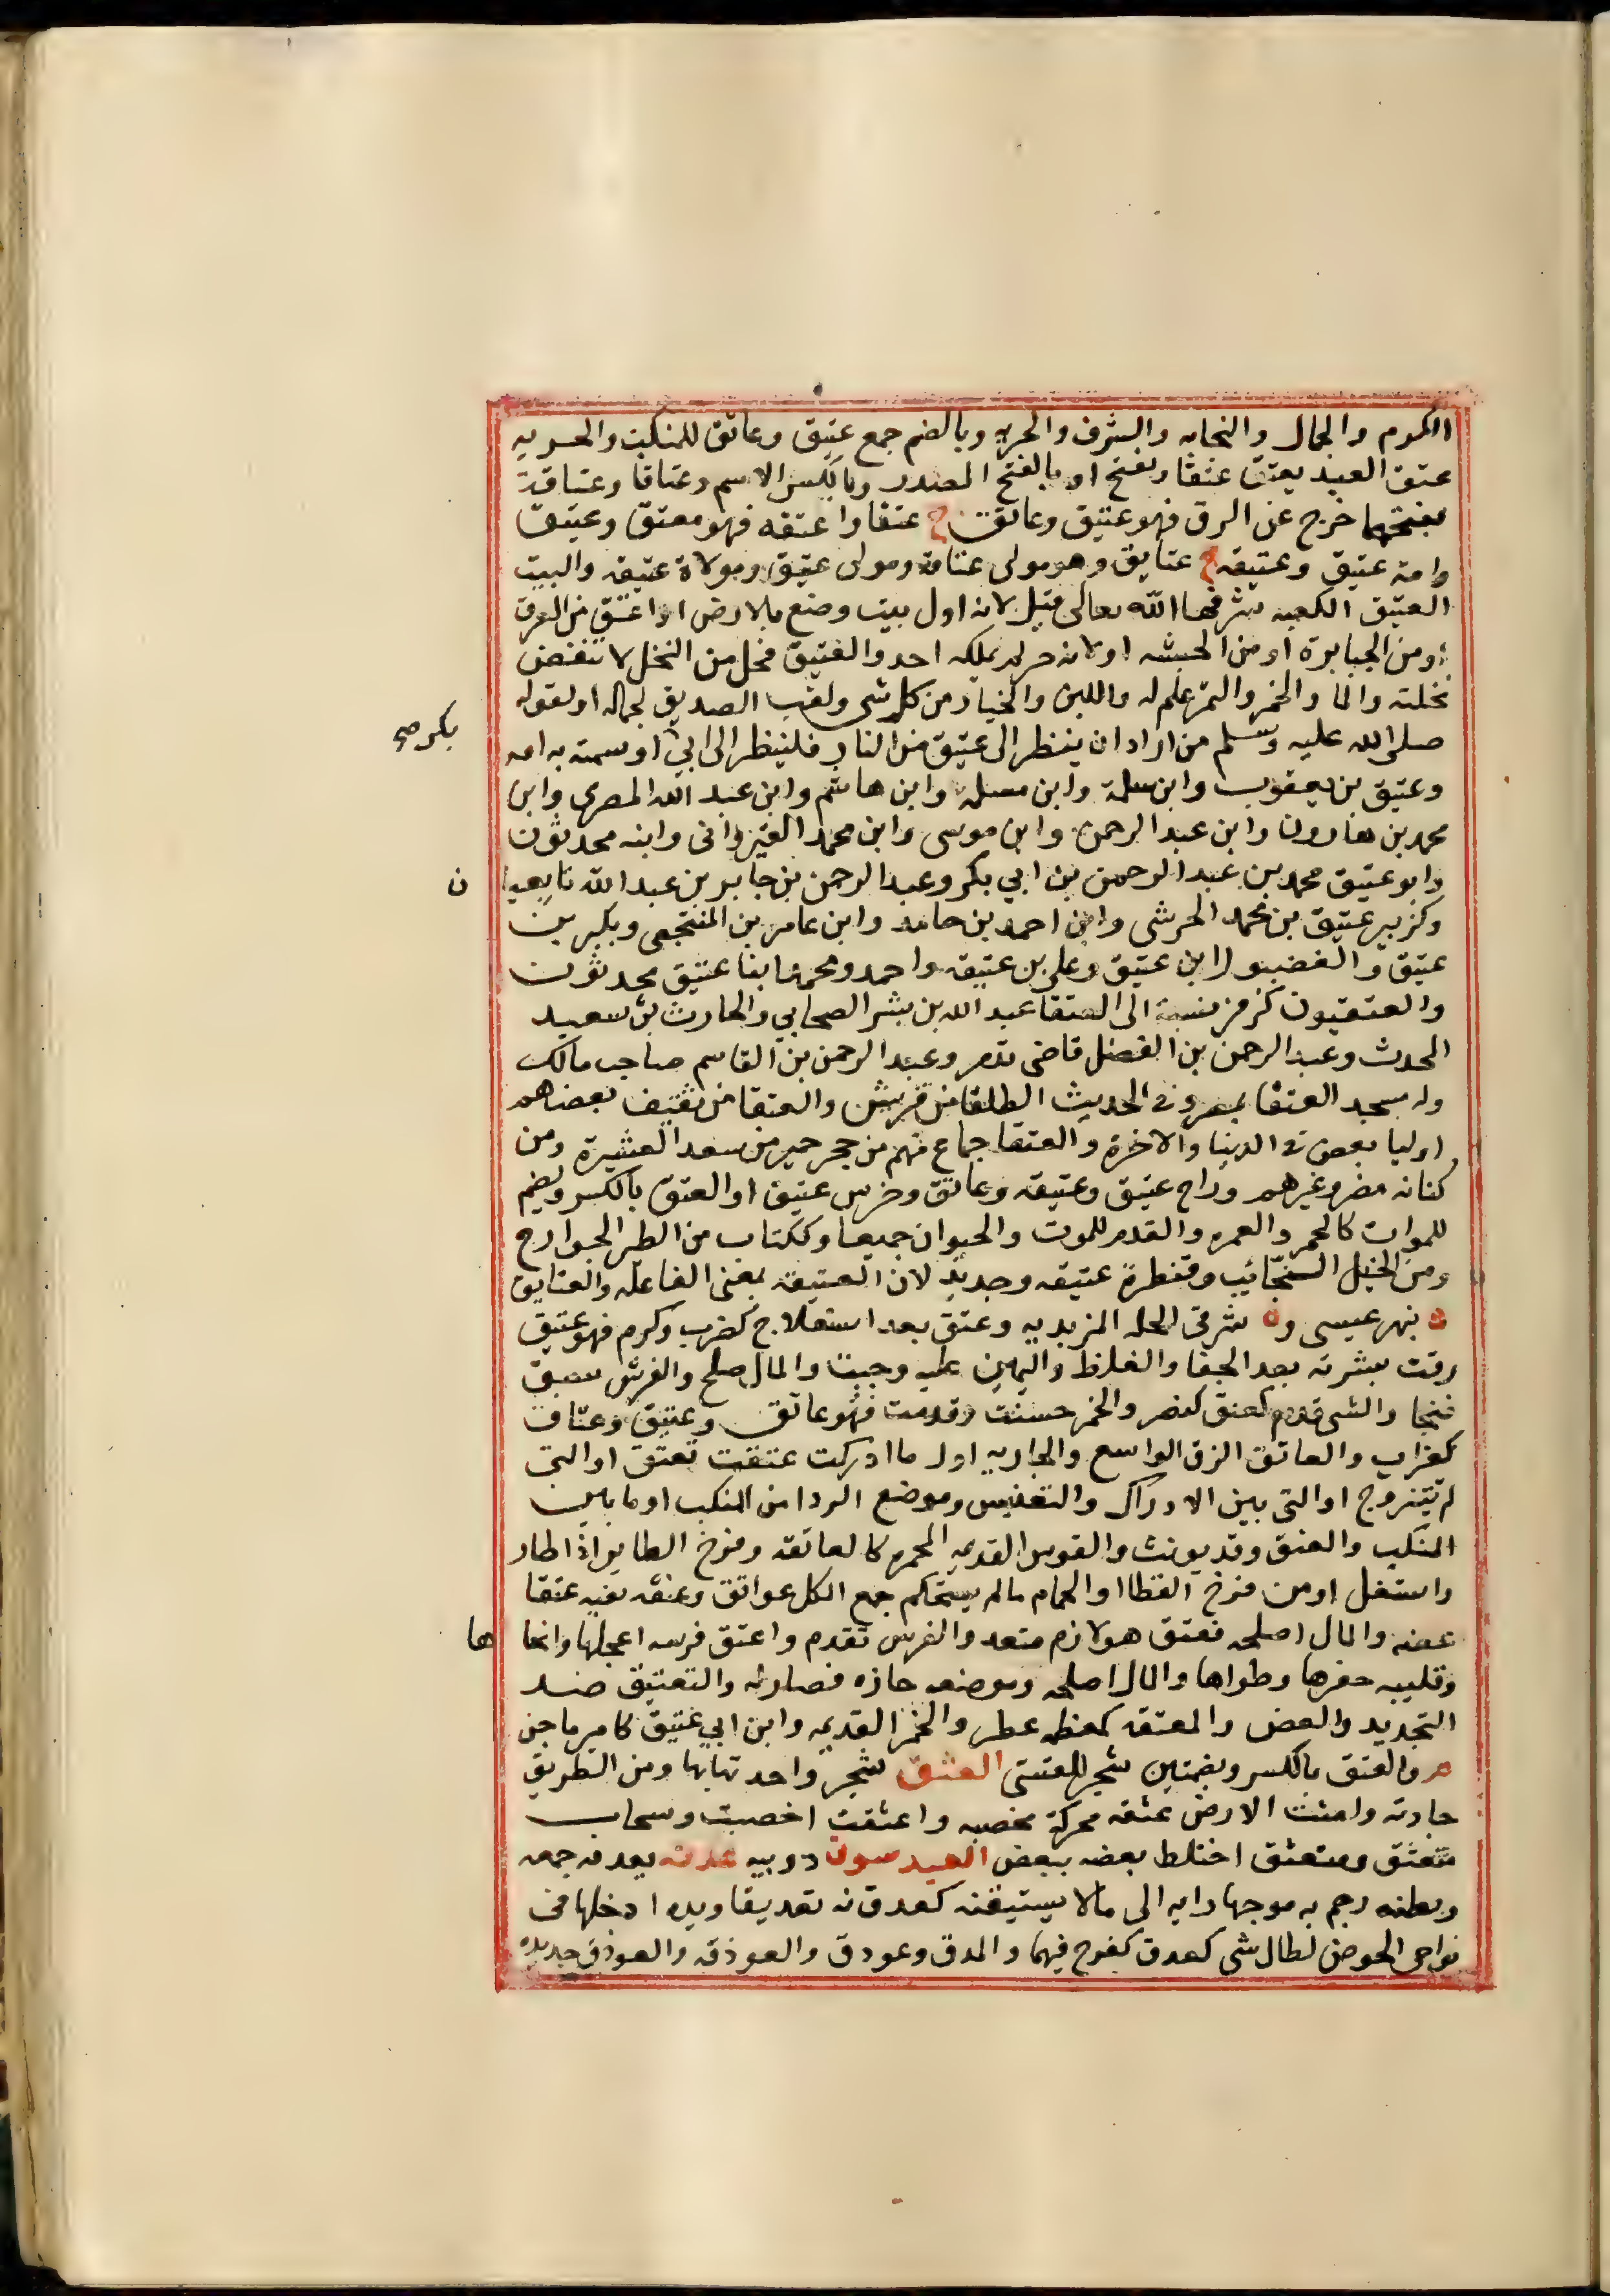 الكرم والجمال والنجابه والشرف والحريه وبالضم جمع عتيق وعاتق للمنكب والحريه
عتق العبد يعتق عتقا ويفتح او بالفتح المصدر وبالكسر الاسم وعتاقا وعتاقة
بفتحهما خرج عن الرق فهو عتيق وعاتق ج عتقا واعتقه فهو معتق وعتيق
وامة عتيق وعتيقه ج عتايق وهو مولى عتاقة ومولى عتيق ومولاة عتيقه والبيت
العتيق الكعبه شرفها الله تعالى قيل لانه اول بيت وضع بالارض او اعتق من الغرق
او من الجبابرة او من الحبشه او لانه حر لم يملكه احد والعتيق فحل من النخل لا تنفض
نخلته والما والخمر والتمر علم له واللبن والخيار من كل شي ولقب الصديق لجماله او لقوله
صلى الله عليه وسلم من اراد ان ينظر الى عتيق من النار فلينظر الى ابي او سمته به امه
بكر صح
وعتيق بن يعقوب وابن سلمة وابن مسلمه وابن هاشم وابن عبد الله المصرى وابن
محمد بن هارون وابن عبد الرحمن وابن موسى وابن محمد القيروانى وابنه محدثون
وابو عتيق محمد بن عبد الرحمن بن ابي بكر وعبد الرحمن بن جابر بن عبد الله تابعيا
ن
وكزبير عتيق بن محمد الحرشى وابن احمد بن حامد وابن عامر بن المنتجعى وبكير بن
عتيق والغضبو ابن عتيق وعلى بن عتيقه واحمد ومحمد ابنا عتيق محدثون
والعتقيون كزفر نسبة الى العتقا عبد الله بن بشر الصحابي والحارث بن سعيد
المحدث وعبد الرحمن بن الفضل قاضى تدمر وعبد الرحمن بن القاسم صاحب مالك
وله مسجد العتقا بمصر وفى الحديث الطلقا من قريش والعتقا من ثقيف بعضهم
اوليا بعض فى الدنيا والاخرة والعتقا جماع فيهم من حجر حمير من سعد العشيرة ومن
كنانه مضر وغيرهم وراح عتيق وعتيقه وعاتق وخرس عتيق او العتق بالكسر ويضم
للموات كالخمر والعمره والقدم للموت والحيوان جميعا وككتاب من الطير الجوارح
ومن الخيل النجائب وقنطرة عتيقه وجديد لان العتيقه بمعنى الفاعله والعتايق
ة بنهر عيسى وة شرقى الحله المزيديه وعتق بعد استعلاج كضرب وكرم فهو عتيق
رقت بشرته بعد الجفا والغلظ واليمين عليه وجبت والمال صلح والفرس سبق
فنجا والشى قدم كعتق كنصر والخمر حسنت وقدمت فهو عاتق وعتيق وعتاق
كغراب والعاتق الزق الواسع والجاريه اول ما ادركت عتقت تعتق او التى
لم تتزوج او التى بين الادراك والتعنيس وموضع الردا من المنكب او ما بين
المنكب والعنق وقد يونث والقوس القديمه المحمره كالعاتقه وفرخ الطاير اذا طار
واستقل او من فرخ القطا او الحمام ما لم يستحكم جمع الكل عواتق وعتقه بفيه عتقا
عضه والمال اصلحه فعتق هو لازم متعد والفرس تقدم واعتق فرسه اعجلها وانجا
ها
وقليبه حفرها وطواها والمال اصلحه وموضعه حازه فصار له والتعتيق ضد
التجديد والعض والمعتقه كمعظمه عطر والخمر القديمه وابن ابي عتيق كامير ماجن
م والعتق بالكسر وبضمتين شجر للقسى العثق شجر واحدتها بها ومن الطريق
جادته وامثت الارض عثقه محركة مخصبه واعثقت اخصبت وسحاب
متعثق ومنعثق اختلط بعضه ببعض العيدسوق دويبه عدقه يعدقه جمعه
وبظنه رجم به موجها رايه الى ما لا يستيقنه كعدق به تعديقا ويده ادخلها فى
نواحى الحوض لطال شى كعدق كفرح فيهما والمدق وعودق والعودقه والعودق حديده